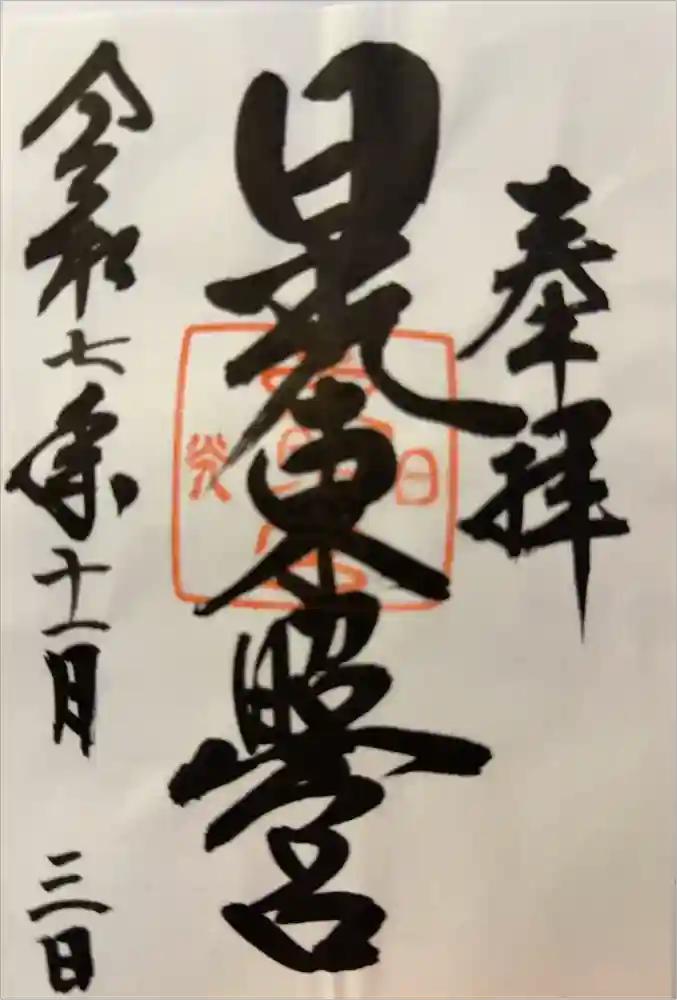 奉拝
日光東照宮
日光
令和七年十一月三日